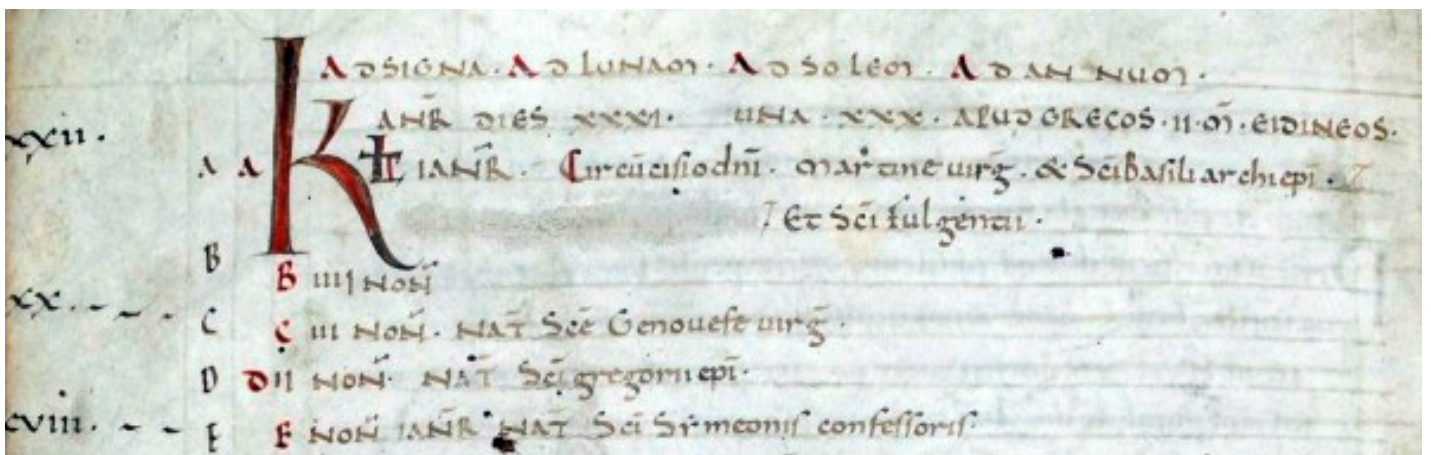 ADSIGNA. ADLUNAM. ADSOLEM. ADANNUM.
xxii. K IANR̄ DIES XXXI. UNA. XXX. APUD GRECOS. II. M̄. EIDINEOS.
A A IANR̄. Circūcisio dn̄i. Martine uirḡ. & Sc̄i Basili archiep̄i. 7
7 Et Sc̄i fulgentii.
B B IIII NON̄
xx. C C III NON̄. NAT̄ Sc̄e Genouefe uirḡ.
D D II NON̄. NAT̄ Sc̄i gregorii ep̄i.
cviii. E E NON̄ IANR̄ NAT̄ Sc̄i Sỳmeonis confessoris